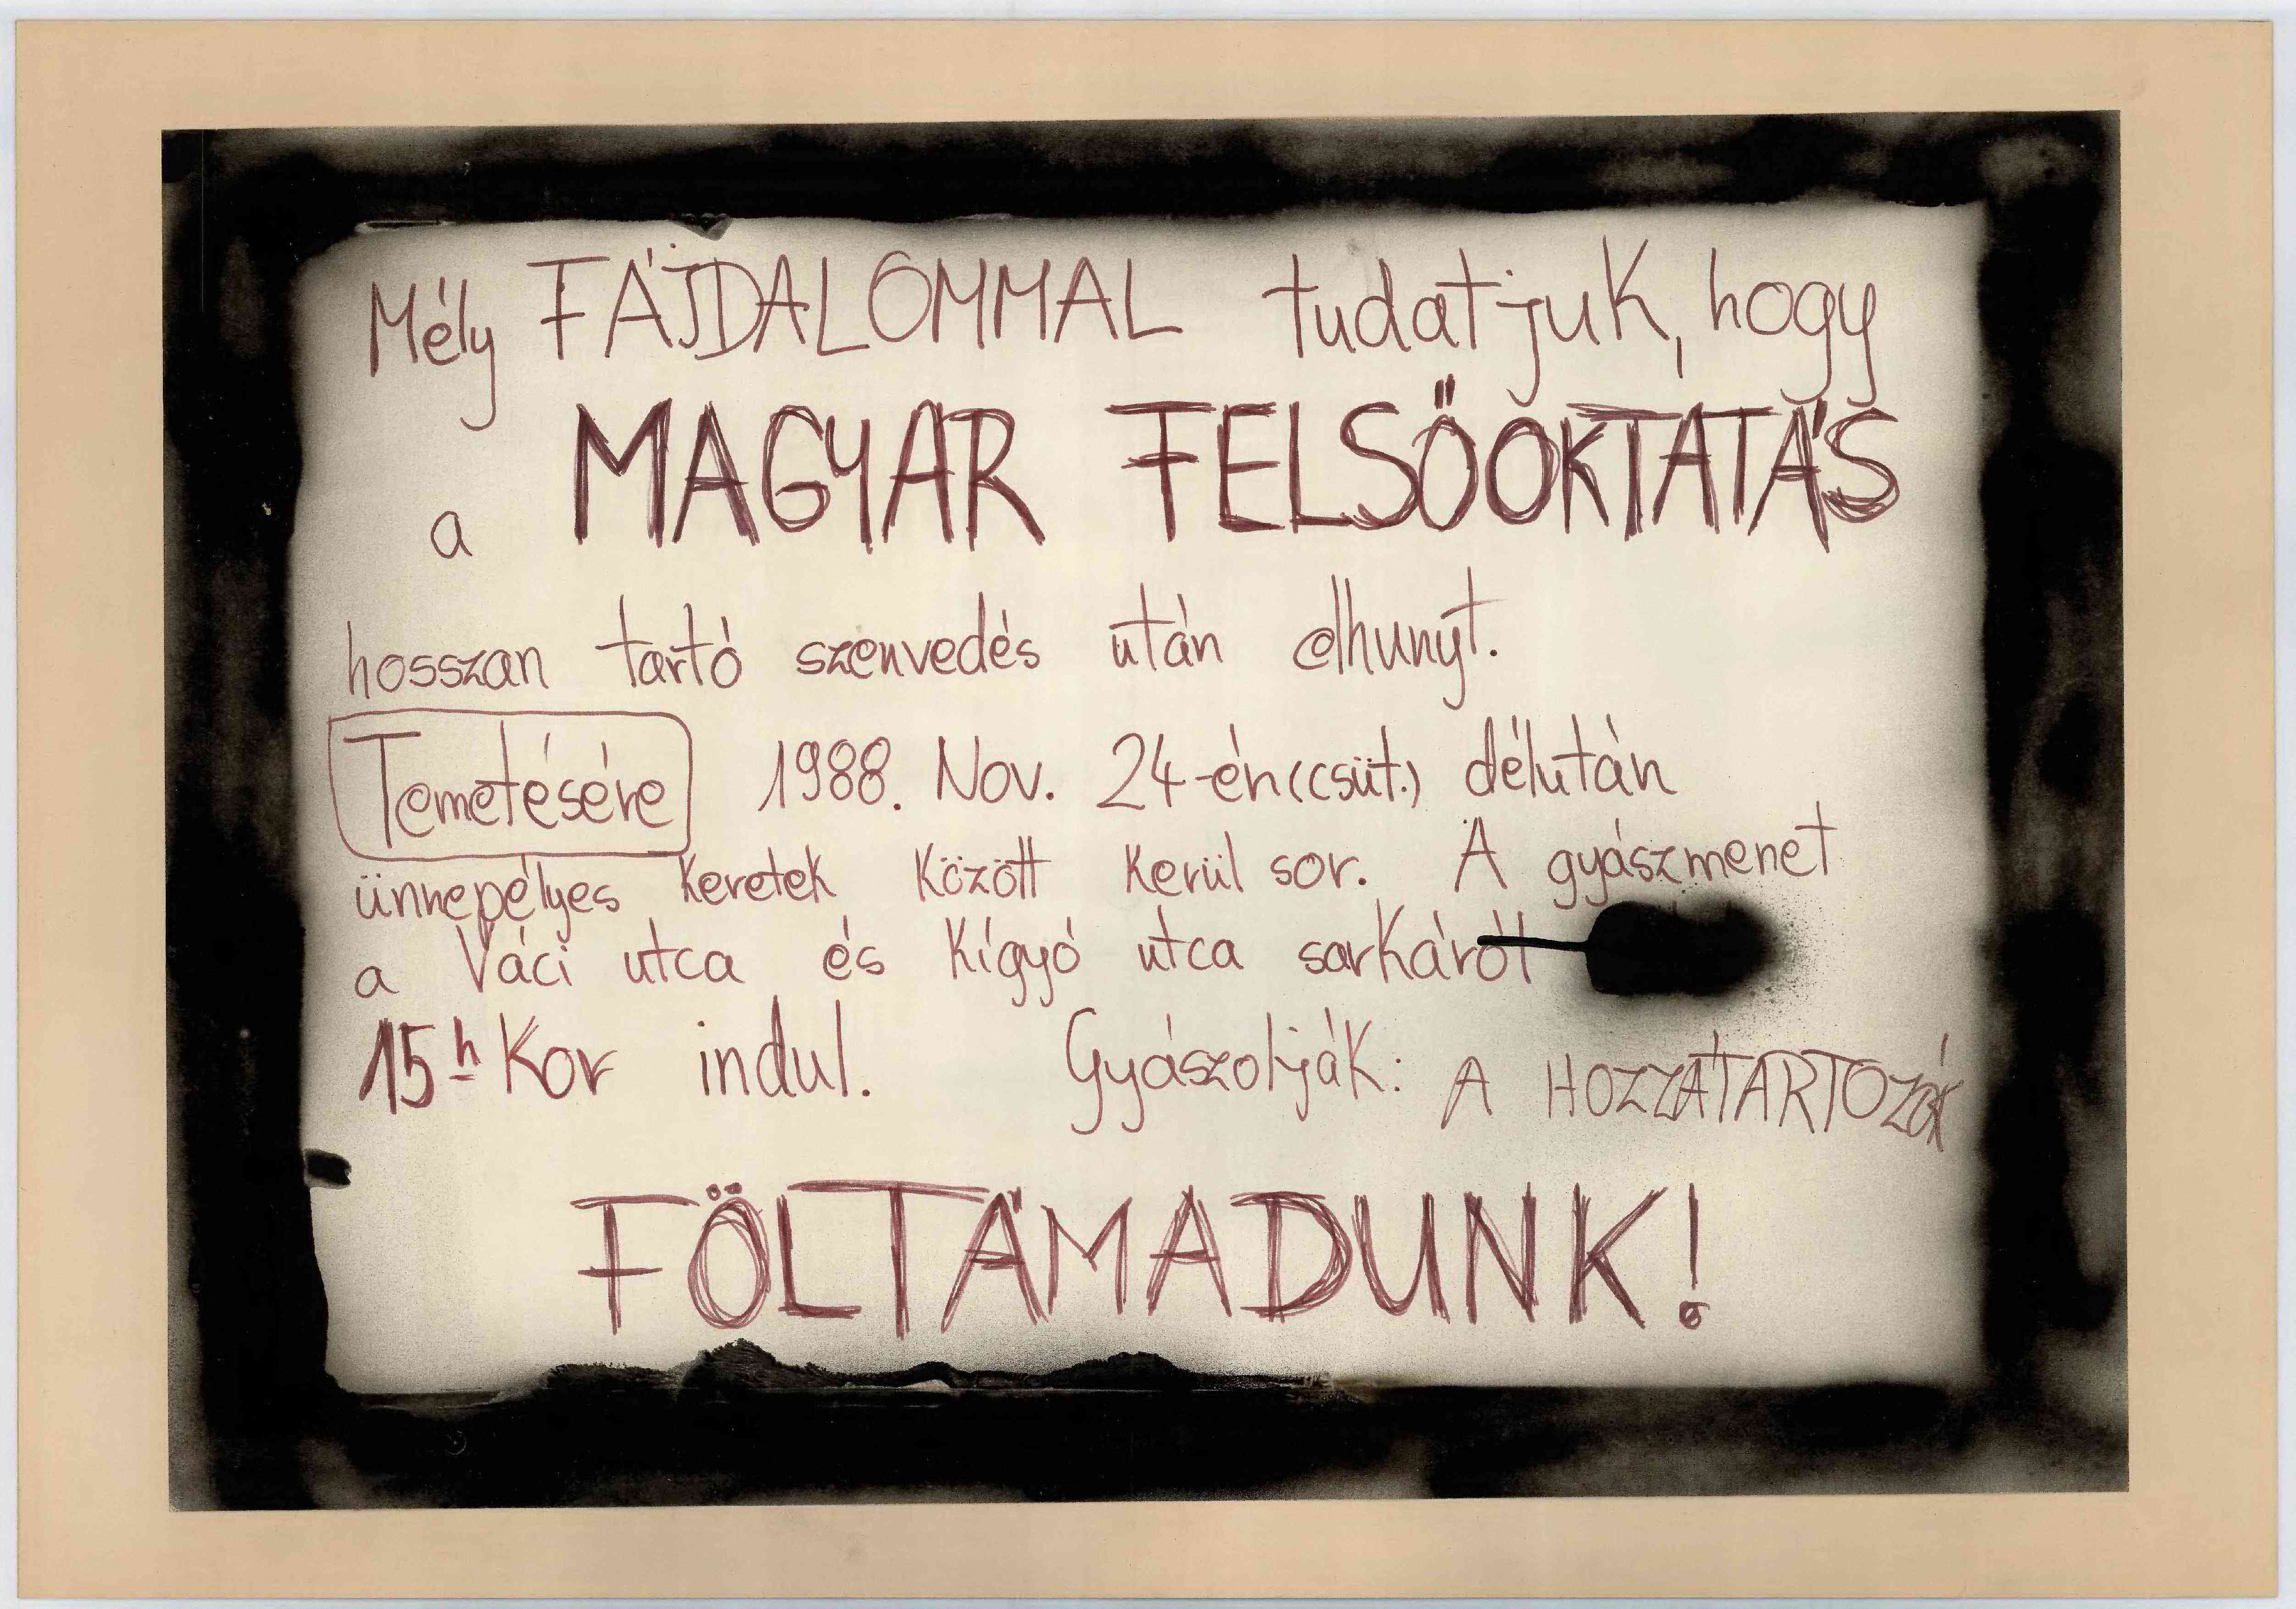 Mély FÁJDALOMMAL tudatjuk, hogy
a MAGYAR FELSŐOKTATÁS
hosszan tartó szenvedés után elhunyt.
Temetésére 1988. Nov. 24-én (csüt.) délután
ünnepélyes keretek között kerül sor. A gyászmenet
a Váci utca és Kígyó utca sarkáról
15h kor indul. Gyászolják: A HOZZÁTARTOZÓK
FÖLTÁMADUNK!